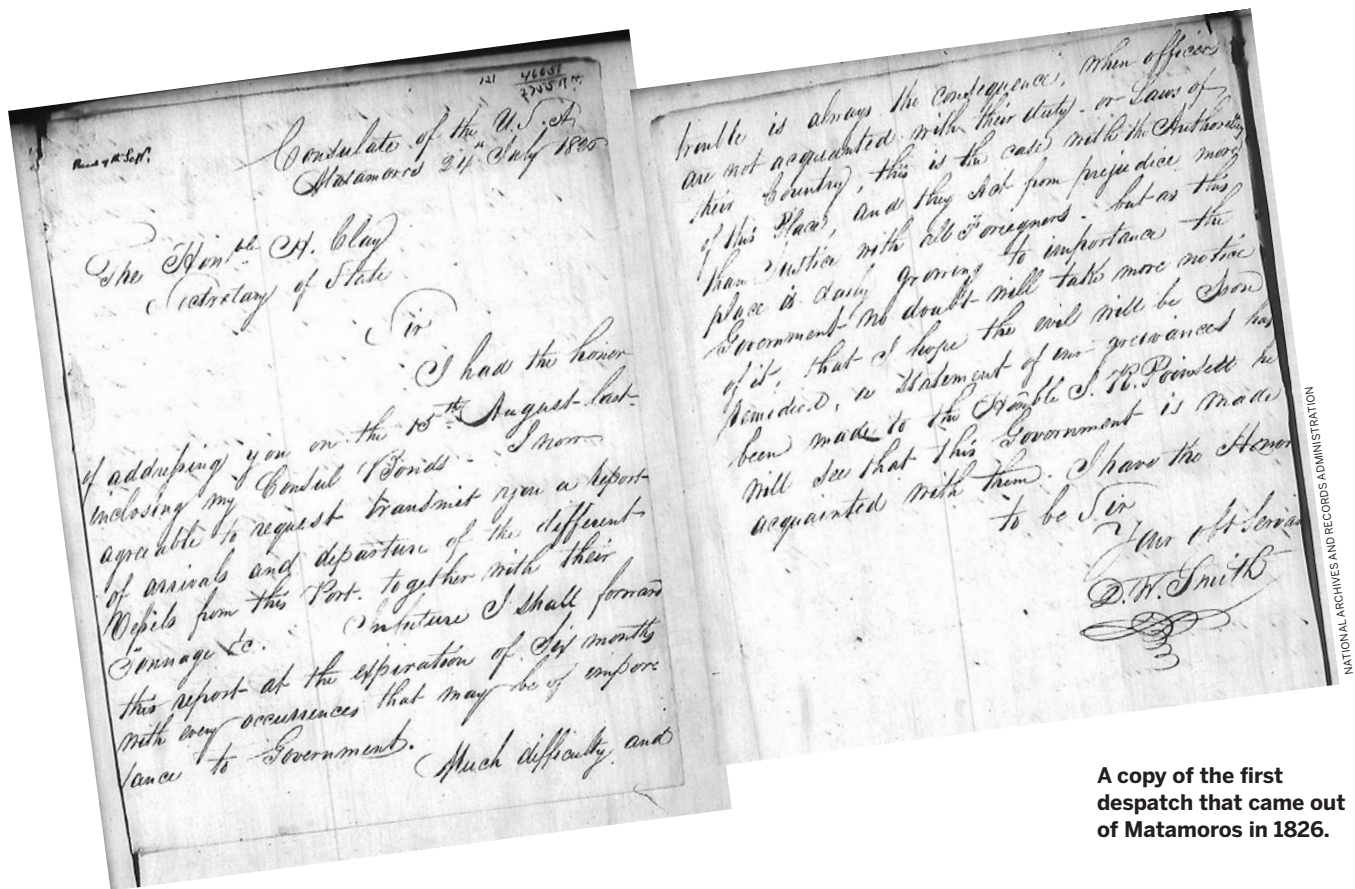 121
Consulate of the U.S.A.
Matamoros 24th July 1826
The Honble H. Clay
Secretary of State
Sir
I had the honor
of addressing you on the 15th August last
inclosing my Consul Bonds. I now
agreeable to request transmit you a report
of arrivals and departure of the different
Vessels from this Port. together with their
Tonnage &c. Infuture I shall forward
this report at the expiration of Six months
with every occurrences that may be of impor:
tance to Government.
Much difficulty and
trouble is always the consequence, when officers
are not acquainted with their duty. or Laws of
their Country, this is the case with the Authority
of this Place, and they Act from prejudice more
than Justice with all Foreigners. but as this
place is daily growing to importance the
Government no doubt will take more notice
of it, that I hope the evil will be Soon
remidied, a Statement of our greivances has
been made to the Honble J. R. Poinsett he
will see that this Government is made
acquainted with them. I have the Honor
to be Sir
Your obt Servan
D. W. Smith
NATIONAL ARCHIVES AND RECORDS ADMINISTRATION
A copy of the first
despatch that came out
of Matamoros in 1826.